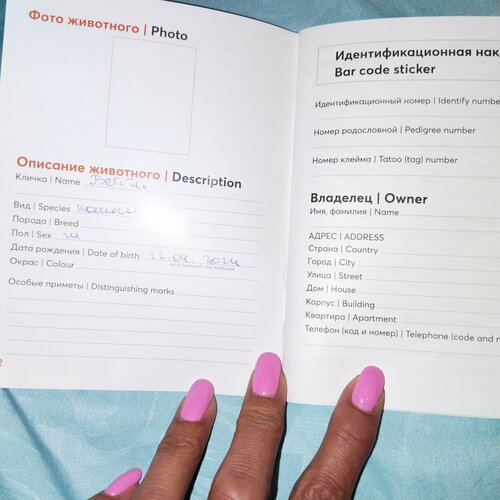 Фото животного | Photo
Описание животного | Description
Кличка | Name
Вид | Species
Порода | Breed
Пол | Sex м
Дата рождения | Date of birth 26.04.2024
Окрас | Colour
Особые приметы | Distinguishing marks
2
Идентификационная нак
Bar code sticker
Идентификационный номер | Identify numbe
Номер родословной | Pedigree number
Номер клейма | Tatoo (tag) number
Владелец | Owner
Имя, фамилия | Name
АДРЕС | ADDRESS
Страна | Country
Город | City
Улица | Street
Дом | House
Корпус | Building
Квартира | Apartment
Телефон (код и номер) | Telephone (code and n